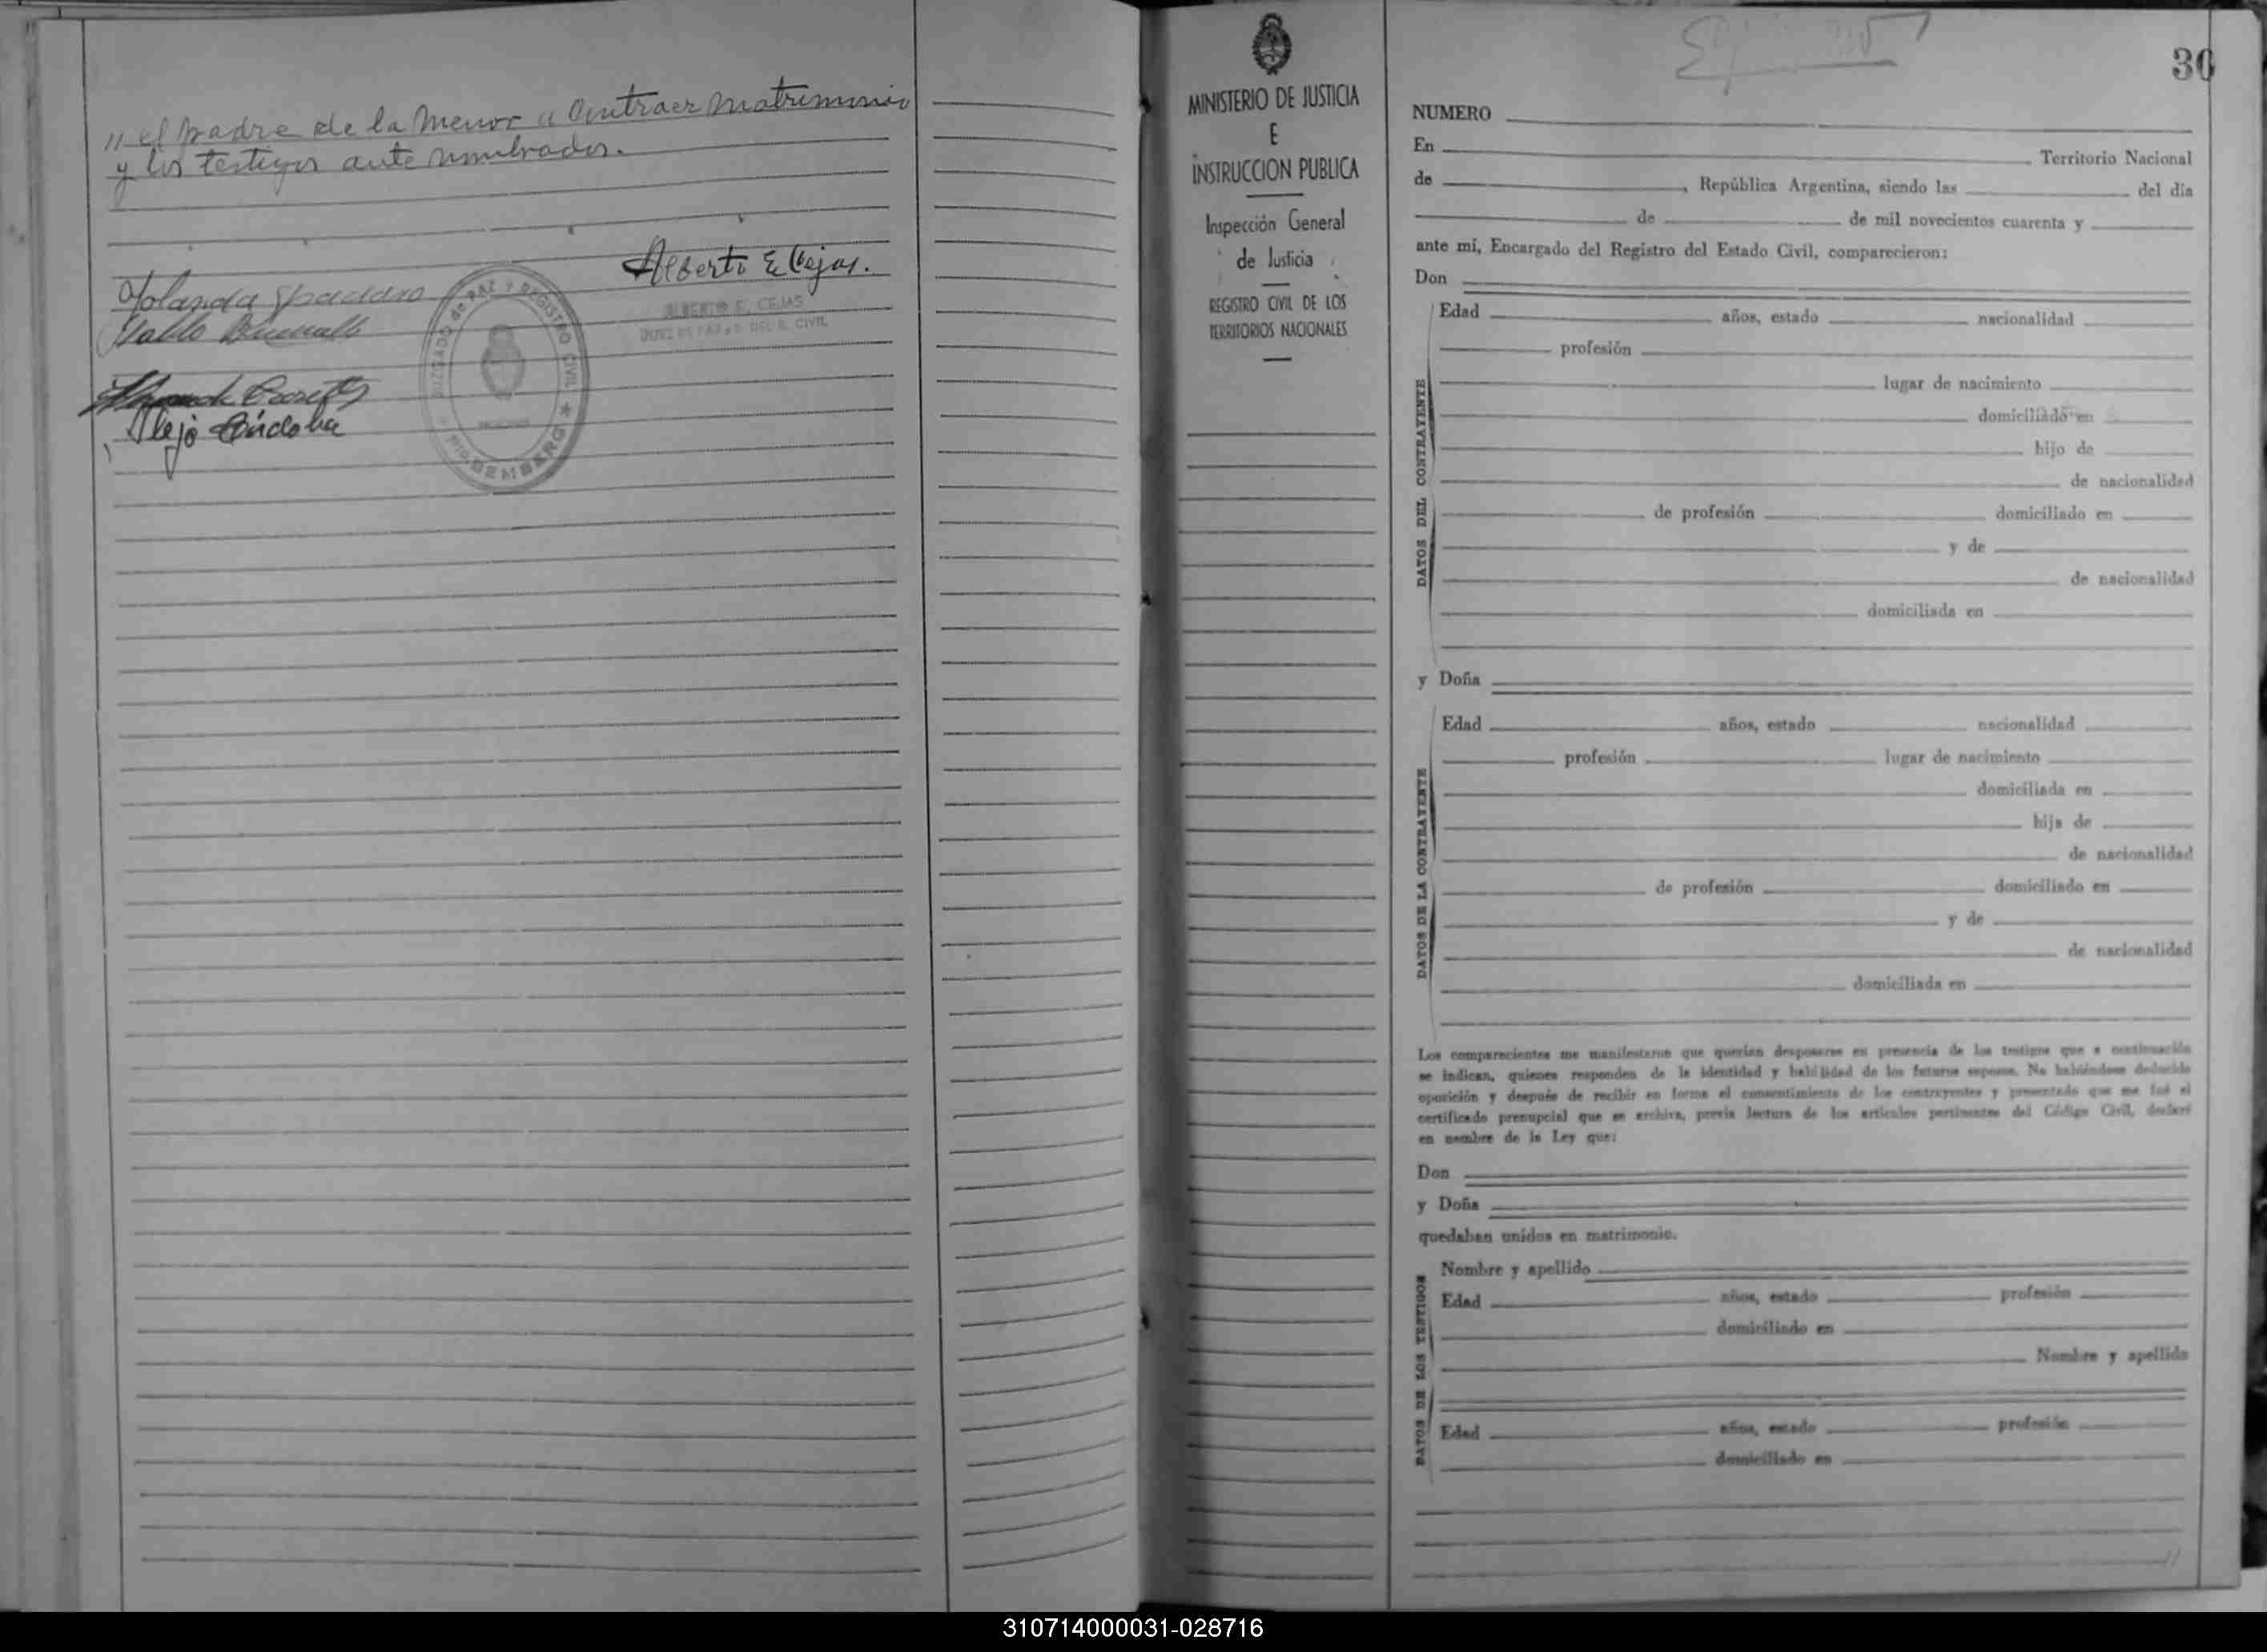 // el padre de la menor a contraer matrimonio
y los testigos ante nombrados.
Alberto E. Cejas.
ALBERTO E. CEJAS
JUEZ DE PAZ y E. DEL R. CIVIL
Yolanda
Pablo
Alejo Córdoba
JUZGADO de PAZ Y REGISTRO CIVIL ★
Pto. BEMBERG
MINISTERIO DE JUSTICIA
E
INSTRUCCION PUBLICA
Inspección General
de Justicia
REGISTRO CIVIL DE LOS
TERRITORIOS NACIONALES
30
NUMERO
En Territorio Nacional
de , República Argentina, siendo las del día
de de mil novecientos cuarenta y
ante mí, Encargado del Registro del Estado Civil, comparecieron:
Don
DATOS DEL CONTRATENTE
Edad años, estado nacionalidad
profesión
lugar de nacimiento
domiciliado en
hijo de
de nacionalidad
de profesión domiciliado en
y de
de nacionalidad
domiciliada en
y Doña
DATOS DE LA CONTRATENTE
Edad años, estado nacionalidad
profesión lugar de nacimiento
domiciliada en
hija de
de nacionalidad
de profesión domiciliado en
y de
de nacionalidad
domiciliada en
Los comparecientes me manifestaron que querían desposarse en presencia de los testigos que a continuación
se indican, quienes responden de la identidad y habilidad de los futuros esposos. No habiéndose deducido
oposición y después de recibir en forma el consentimiento de los contrayentes y presentado que me fué el
certificado prenupcial que se archiva, previa lectura de los artículos pertinentes del Código Civil, declaré
en nombre de la Ley que:
Don
y Doña
quedaban unidos en matrimonio.
DATOS DE LOS TESTIGOS
Nombre y apellido
Edad años, estado profesión
domiciliado en
Nombre y apellido
Edad años, estado profesión
domiciliado en
//
310714000031-028716